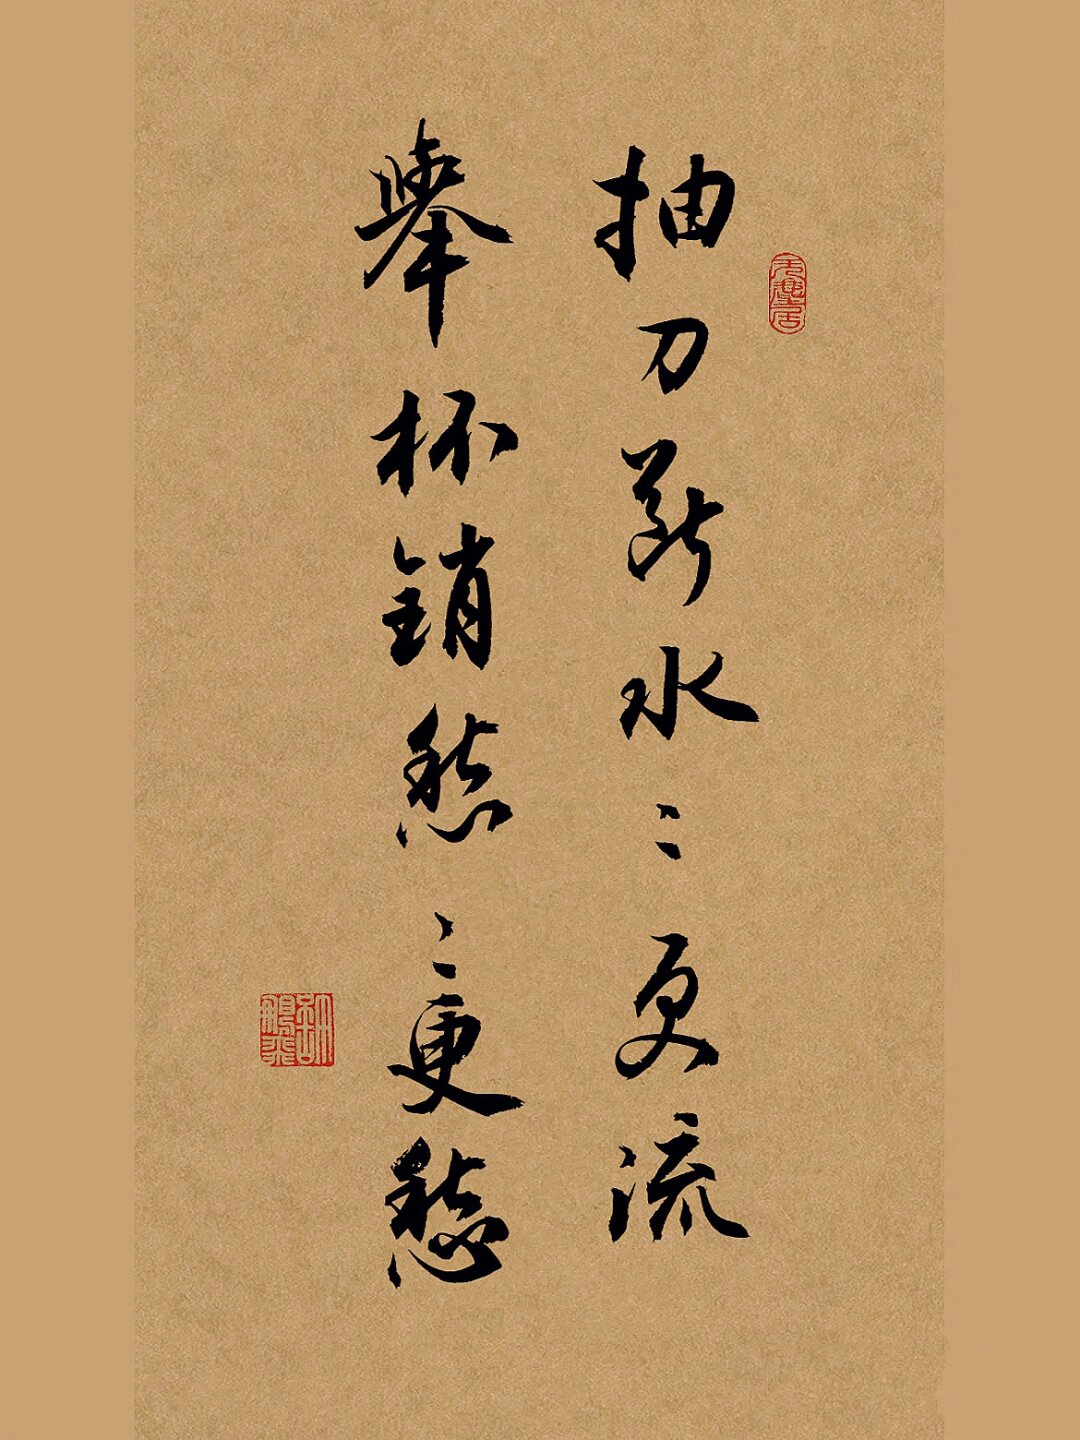 抽刀斷水〻更流
舉杯銷愁〻更愁